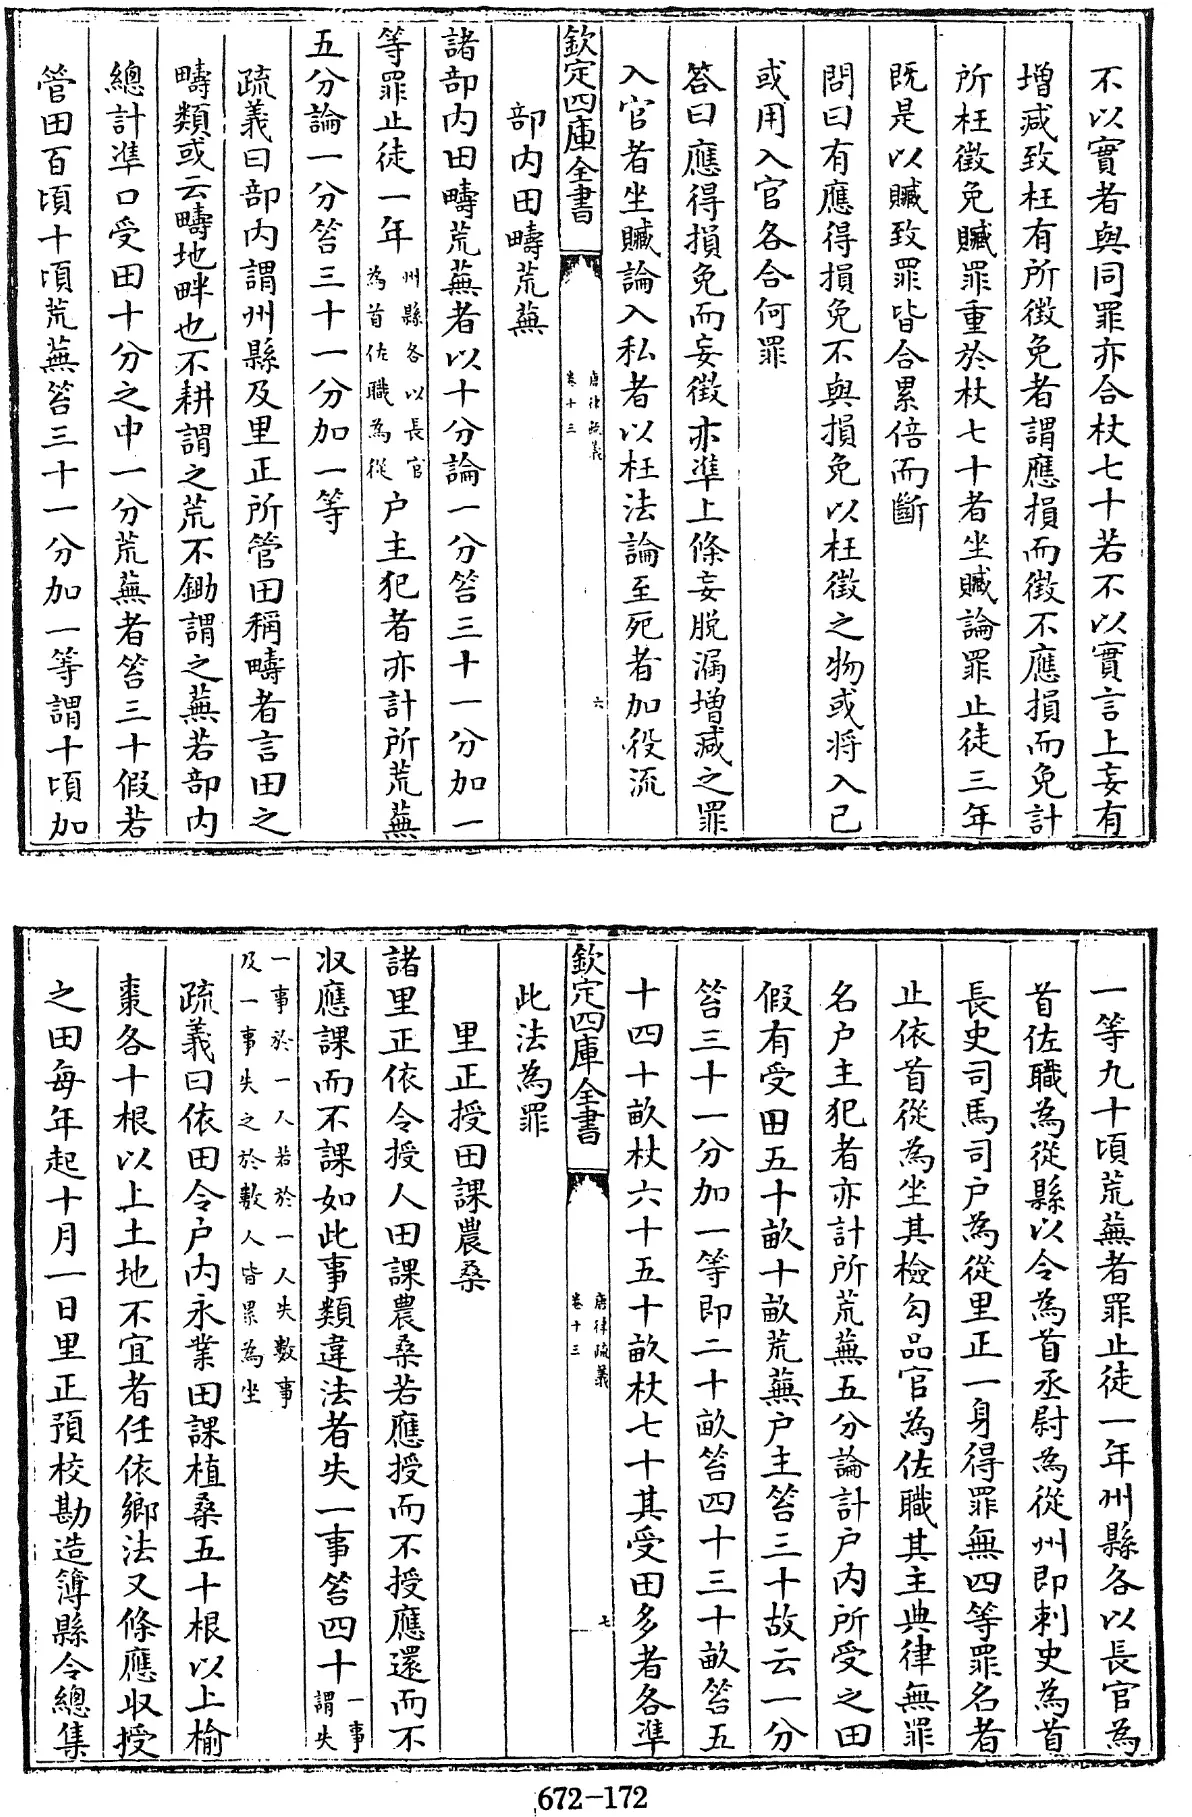 不以實者與同罪亦合杖七十若不以實言上妄有
增減致枉有所徵免者謂應損而徵不應損而免計
所枉徵免贓罪重於杖七十者坐贓論罪止徒三年
既是以贓致罪皆合累倍而斷
問曰有應得損免不與損免以枉徵之物或將入己
或用入官各合何罪
答曰應得損免而妄徵亦準上條妄脫漏增減之罪
入官者坐贓論入私者以枉法論至死者加役流
欽定四庫全書
唐律疏義
卷十三
六
部内田疇荒蕪
諸部内田疇荒蕪者以十分論一分笞三十一分加一
等罪止徒一年州縣各以長官為首佐職為從户主犯者亦計所荒蕪
五分論一分笞三十一分加一等
疏義曰部内謂州縣及里正所管田稱疇者言田之
疇類或云疇地畔也不耕謂之荒不鋤謂之蕪若部内
總計準口受田十分之中一分荒蕪者笞三十假若
管田百頃十頃荒蕪笞三十一分加一等謂十頃加
一等九十頃荒蕪者罪止徒一年州縣各以長官為
首佐職為從縣以令為首丞尉為從州即刺史為首
長史司馬司户為從里正一身得罪無四等罪名者
止依首從為坐其檢勾品官為佐職其主典律無罪
名户主犯者亦計所荒蕪五分論計户内所受之田
假有受田五十畝十畝荒蕪户主笞三十故云一分
笞三十一分加一等即二十畝笞四十三十畝笞五
十四十畝杖六十五十畝杖七十其受田多者各準
欽定四庫全書
唐律疏義
卷十三
七
此法為罪
里正授田課農桑
諸里正依令授人田課農桑若應授而不授應還而不
収應課而不課如此事類違法者失一事笞四十一事謂失
一事於一人若於一人失數事
及一事失之於數人皆累為坐
疏義曰依田令户内永業田課植桑五十根以上榆
棗各十根以上土地不宜者任依鄉法又條應収授
之田每年起十月一日里正預校勘造簿縣令總集
672-172